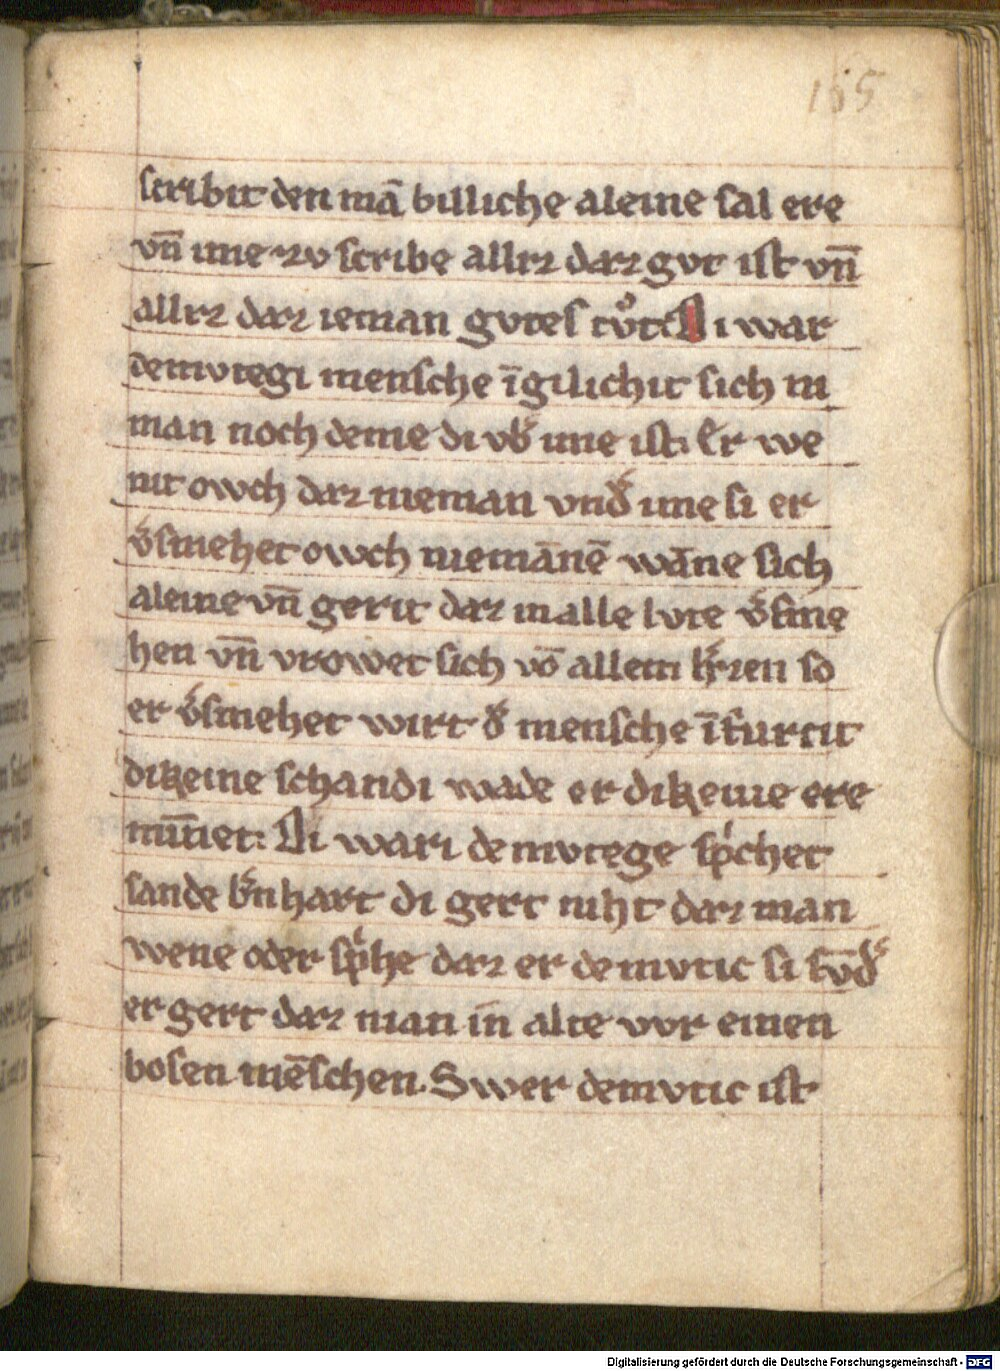 155
scribit den mā billiche aleine sal ere
vn̄ ime zv scribe allez daz gvt ist vn̄
allez daz ieman gvtes tv̊t Di war
demvtegi mensche īgilichit sich ni
man noch deme di vb͛ ime ist. Er we
nit owch daz nieman vnd͛ ime si er
v͛smehet owch niemānē wāne sich
aleine vn̄ gerit daz in alle lvte v͛sme
hen vn̄ vrowet sich vō allem h͛zen so
er v͛smehet wirt d͛ mensche
dikeine schandi wāde er dikeine ere
mīnet. Di wari demvtege sp͛chet
sande b͛nhart di gert niht daz man
wene oder sp͛che daz er demvtic si svnd͛
er gert daz man in alte vvr einen
bosen mēschen. Swer demvtic ist
Digitalisierung gefördert durch die Deutsche Forschungsgemeinschaft - DFG